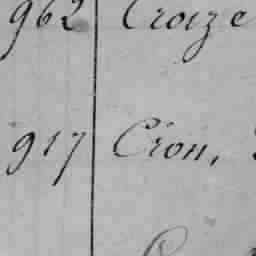 962 Croize
917 Cron,